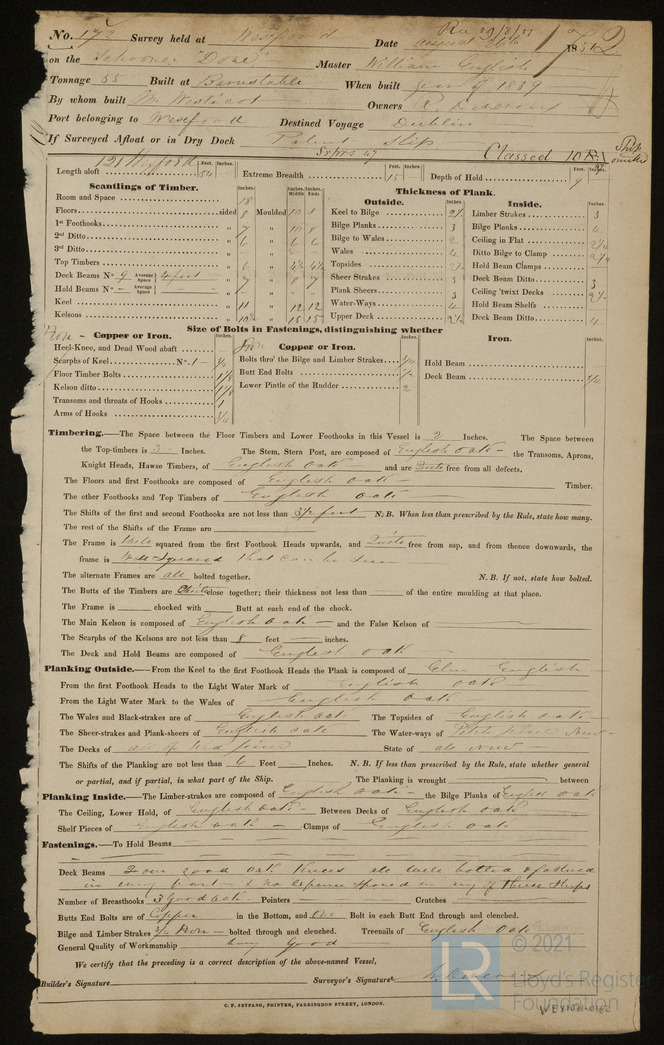 No. 172 Survey held at Wexford Date August 1851
on the Schooner "Dove" Master William English
Tonnage 55 Built at Barnstable When built year of 1839
By whom built Mr Westicot Owners R. Devereux
Port belonging to Wexford Destined Voyage Dublin
If Surveyed Afloat or in Dry Dock Patent Slip
Classed 10
Length aloft Feet. Inches. 54 Extreme Breadth Feet. Inches. 15 Depth of Hold Feet. Inches. 9
Scantlings of Timber.
Room and Space 18
Floors sided 8 Moulded 10 8
1st Foothooks " 7 " 10 8
2nd Ditto " 6 " 6 6
3rd Ditto " "
Top Timbers " 6 "
Deck Beams No. 9 Average Space 4 feet " 7 " 8 7
Hold Beams No. Average Space " "
Keel " 11 " 12 12
Kelsons " " 15 15
Thickness of Plank.
Outside. Inches.
Keel to Bilge
Bilge Planks 3
Bilge to Wales 2
Wales 4
Topsides
Sheer Strakes 3
Plank Sheers 3
Water-Ways 4
Upper Deck 2½
Inside. Inches.
Limber Strakes 3
Bilge Planks 4
Ceiling in Flat 2¼
Ditto Bilge to Clamp 2¼
Hold Beam Clamps
Deck Beam Ditto 3
Ceiling 'twixt Decks 2½
Hold Beam Shelfs
Deck Beam Ditto 4
Size of Bolts in Fastenings, distinguishing whether
Copper or Iron. Inches.
Heel-Knee, and Dead Wood abaft
Scarphs of Keel No. 1
Floor Timber Bolts 1⅛
Kelson ditto 1⅛
Transoms and throats of Hooks 1
Arms of Hooks ¾
Iron
Copper or Iron. Inches.
Bolts thro' the Bilge and Limber Strakes
Butt End Bolts
Lower Pintle of the Rudder 2
Iron. Inches.
Hold Beam
Deck Beam
Timbering.—The Space between the Floor Timbers and Lower Foothooks in this Vessel is 2 Inches. The Space between
the Top-timbers is 3 Inches. The Stem, Stern Post, are composed of English Oak the Transoms, Aprons,
Knight Heads, Hawse Timbers, of English Oak and are Quite free from all defects.
The Floors and first Foothooks are composed of English Oak Timber.
The other Foothooks and Top Timbers of English Oak
The Shifts of the first and second Foothooks are not less than 3½ feet N.B. When less than prescribed by the Rule, state how many.
The rest of the Shifts of the Frame are
The Frame is Well squared from the first Foothook Heads upwards, and Quite free from sap, and from thence downwards, the
frame is Well Squared that can be seen
The alternate Frames are all bolted together. N.B. If not, state how bolted.
The Butts of the Timbers are Quite close together; their thickness not less than of the entire moulding at that place.
The Frame is chocked with Butt at each end of the chock.
The Main Kelson is composed of English Oak and the False Kelson of
The Scarphs of the Kelsons are not less than 8 feet inches.
The Deck and Hold Beams are composed of English Oak
Planking Outside.—From the Keel to the first Foothook Heads the Plank is composed of Elm English
From the first Foothook Heads to the Light Water Mark of English Oak
From the Light Water Mark to the Wales of English Oak
The Wales and Black-strakes are of English Oak The Topsides of English Oak
The Sheer-strakes and Plank-sheers of English Oak The Water-ways of Pitch pine New
The Decks of all of Red pine State of all New
The Shifts of the Planking are not less than 6 Feet Inches. N.B. If less than prescribed by the Rule, state whether general
or partial, and if partial, in what part of the Ship. The Planking is wrought between
Planking Inside.—The Limber-strakes are composed of English Oak the Bilge Planks of English Oak
The Ceiling, Lower Hold, of English Oak Between Decks of English Oak
Shelf Pieces of English Oak Clamps of English Oak
Fastenings.—To Hold Beams
Deck Beams oak Knees all well bolted & fastened
in every part & no expense spared on any of these Ships
Number of Breasthooks 3 Good Oak Pointers Crutches
Butts End Bolts are of Copper in the Bottom, and One Bolt in each Butt End through and clenched.
Bilge and Limber Strakes Iron bolted through and clenched. Treenails of English Oak
General Quality of Workmanship very good
We certify that the preceding is a correct description of the above-named Vessel,
Builder's Signature Surveyor's Signature
C. F. SEYFANG, PRINTER, FARRINGDON STREET, LONDON.
LR
© 2021
Lloyd's Register
Foundation